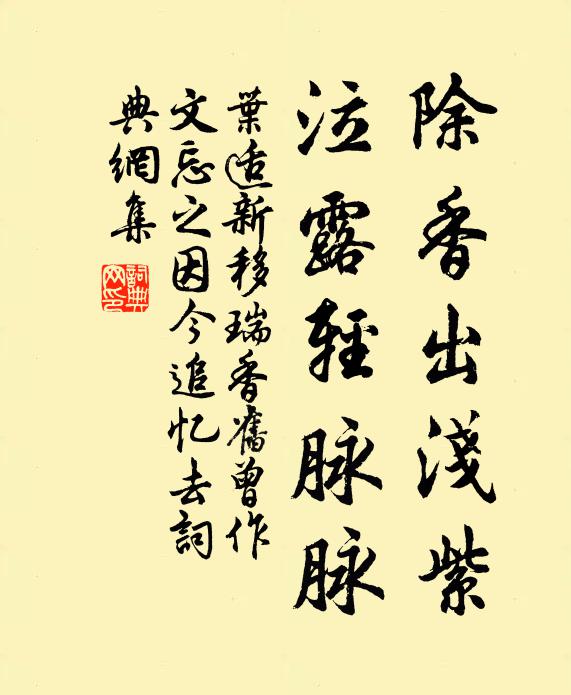 除香出淺紫
泣露輕脉脉
葉适新移瑞香舊曾作
文忘之因今追忆去詞
典網集
詞典网印